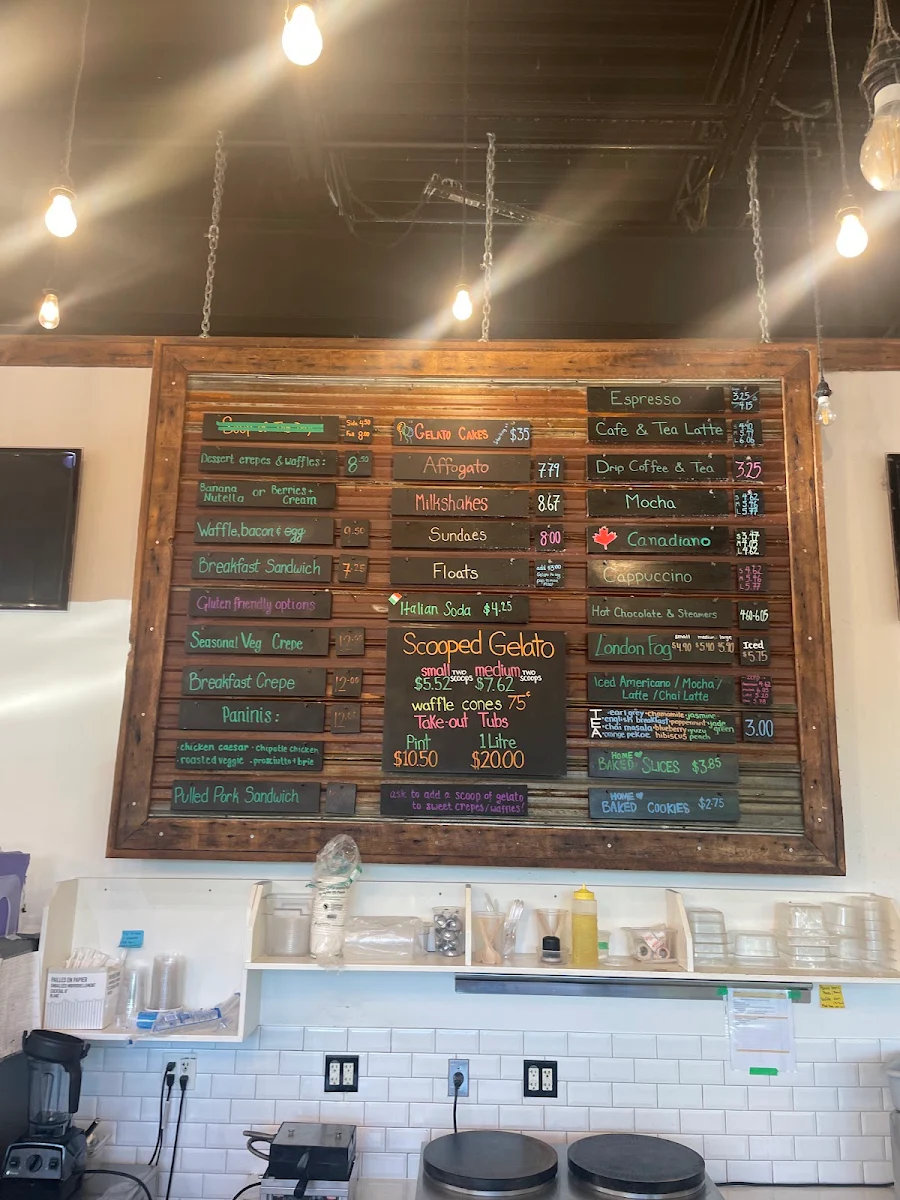 Side 4.50
Full 8.00
Dessert crepes & waffles: 8.50
Banana or Berries+
Nutella Cream
Waffle, bacon & egg 9.50
Breakfast Sandwich 7.25
Gluten friendly options
Seasonal Veg Crepe 12.00
Breakfast Crepe 12.00
Paninis: 12.00
chicken caesar - chipotle chicken
roasted veggie - prosciutto + brie
Pulled Pork Sandwich
GELATO CAKES $35
Affogato 7.79
Milkshakes 8.67
Sundaes 8.00
Floats
Italian Soda $4.25
Scooped Gelato
small TWO SCOOPS medium TWO SCOOPS
$5.52 $7.62
waffle cones 75¢
Take-out Tubs
Pint 1 Litre
$10.50 $20.00
ask to add a scoop of gelato
to sweet crepes/waffles!
Espresso 3.25
4.15
Cafe & Tea Latte
Drip Coffee & Tea 3.25
Mocha
Canadiano
Cappuccino
Hot Chocolate & Steamers 4.60-6.05
small medium large
London Fog $4.90 $5.40 5.90 Iced $5.75
Iced Americano / Mocha /
Latte / Chai Latte
TEA
• earl grey • chamomile • jasmine
• english breakfast • peppermint • jade
• chai masala • blueberry green
• orange pekoe hibiscus peach
3.00
HOME
BAKED SLICES $3.85
HOME
BAKED COOKIES $2.75
PAILLES EN PAPIER